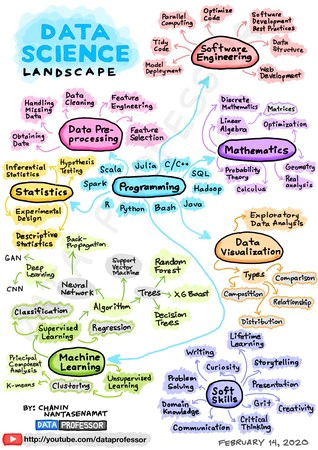 DATA
SCIENCE
LANDSCAPE
Parallel
Computing
Optimize
Code
Software
Development
Best Practices
Tidy
Code
Data
Structure
Model
Deployment
Web
Development
Software
Engineering
Handling
Missing
Data
Data
Cleaning
Feature
Engineering
Obtaining
Data
Feature
Selection
Data Pre-
processing
Discrete
Mathematics
Matrices
Linear
Algebra
Optimization
Mathematics
Probability
Theory
Calculus
Geometry
Real
analysis
Inferential
Statistics
Hypothesis
Testing
Statistics
Experimental
Design
Descriptive
Statistics
Scala
Julia
C/C++
SQL
Spark
Programming
Hadoop
R
Python
Bash
Java
Exploratory
Data Analysis
Data
Visualization
Types
Comparison
Composition
Relationship
Distribution
GAN
Deep
Learning
CNN
Back-
Propagation
Neural
Network
Support
Vector
Machine
Random
Forest
Trees
XG Boast
Decision
Trees
Classification
Algorithm
Supervised
Learning
Regression
Principal
Component
Analysis
Machine
Learning
K-means
Clustering
Unsupervised
Learning
Lifetime
Learning
Writing
Curiosity
Storytelling
Problem
Solving
Presentation
Soft
Skills
Domain
Knowledge
Grit
Creativity
Communication
Critical
Thinking
BY: CHANIN
NANTASENAMAT
DATA PROFESSOR
http://youtube.com/dataprofessor
FEBRUARY 14, 2020